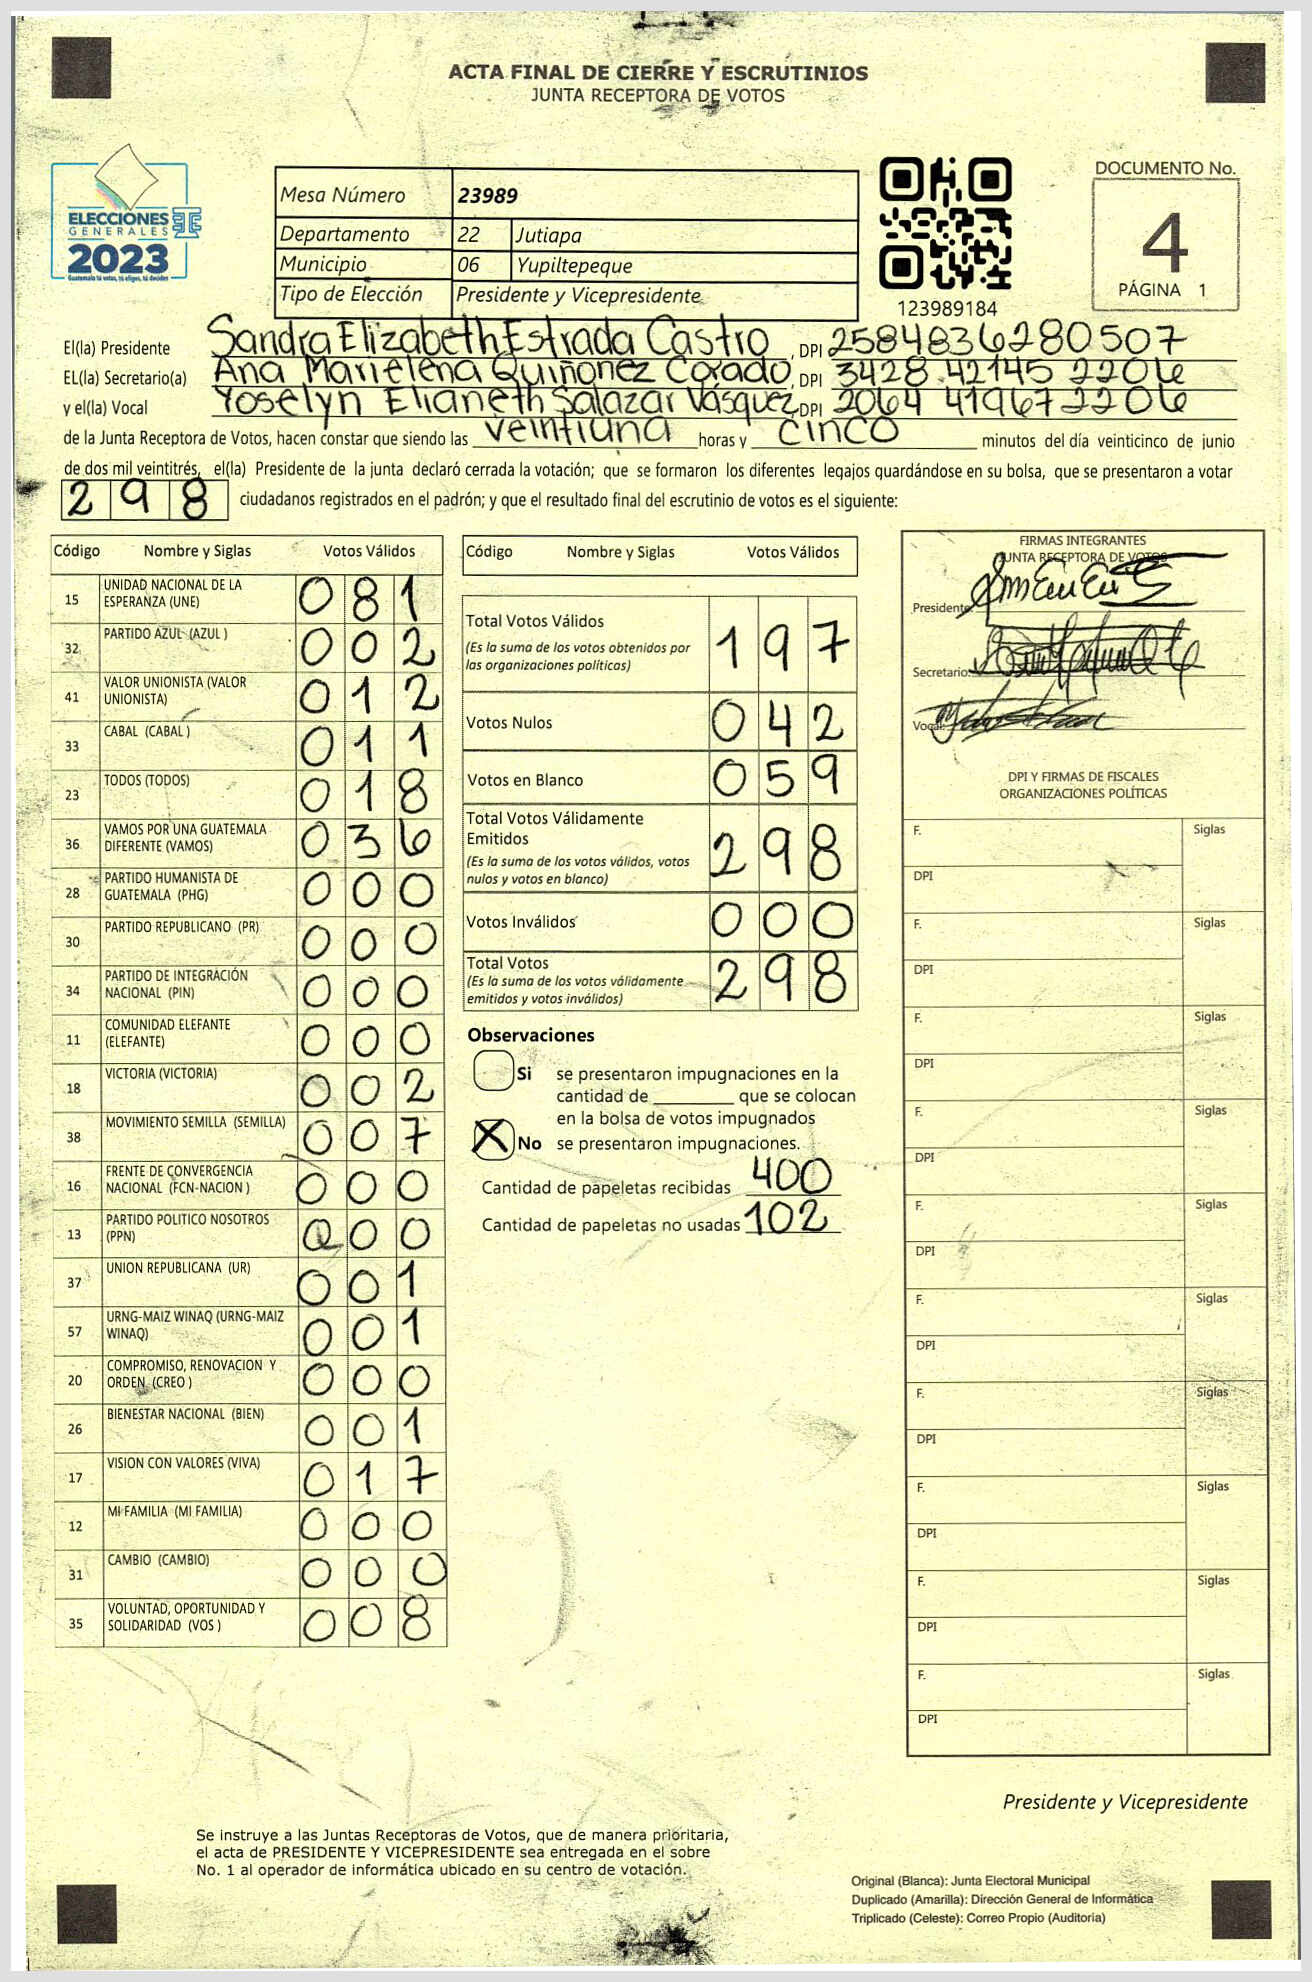 ACTA FINAL DE CIERRE Y ESCRUTINIOS
JUNTA RECEPTORA DE VOTOS
ELECCIONES
GENERALES
2023
Guatemala tú votas, tú eliges, tú decides
Mesa Número 23989
Departamento 22 Jutiapa
Municipio 06 Yupiltepeque
Tipo de Elección Presidente y Vicepresidente
123989184
DOCUMENTO No.
4
PÁGINA 1
El(la) Presidente Sandra Elizabeth Estrada Castro, DPI 2584836280507
EL(la) Secretario(a) Ana Marielena Quiñonez Corado, DPI 3428 42145 2206
y el(la) Vocal Yoselyn Elianeth Salazar Vásquez, DPI 2064 41967 2206
de la Junta Receptora de Votos, hacen constar que siendo las veintiuna horas y cinco minutos del día veinticinco de junio
de dos mil veintitrés, el(la) Presidente de la junta declaró cerrada la votación; que se formaron los diferentes legajos quardándose en su bolsa, que se presentaron a votar
298 ciudadanos registrados en el padrón; y que el resultado final del escrutinio de votos es el siguiente:
Código Nombre y Siglas Votos Válidos
15 UNIDAD NACIONAL DE LA ESPERANZA (UNE) 081
32 PARTIDO AZUL (AZUL ) 002
41 VALOR UNIONISTA (VALOR UNIONISTA) 012
33 CABAL (CABAL ) 011
23 TODOS (TODOS) 018
36 VAMOS POR UNA GUATEMALA DIFERENTE (VAMOS) 036
28 PARTIDO HUMANISTA DE GUATEMALA (PHG) 000
30 PARTIDO REPUBLICANO (PR) 000
34 PARTIDO DE INTEGRACIÓN NACIONAL (PIN) 000
11 COMUNIDAD ELEFANTE (ELEFANTE) 000
18 VICTORIA (VICTORIA) 002
38 MOVIMIENTO SEMILLA (SEMILLA) 007
16 FRENTE DE CONVERGENCIA NACIONAL (FCN-NACION ) 000
13 PARTIDO POLITICO NOSOTROS (PPN) 000
37 UNION REPUBLICANA (UR) 001
57 URNG-MAIZ WINAQ (URNG-MAIZ WINAQ) 001
20 COMPROMISO, RENOVACION Y ORDEN (CREO ) 000
26 BIENESTAR NACIONAL (BIEN) 001
17 VISION CON VALORES (VIVA) 017
12 MI FAMILIA (MI FAMILIA) 000
31 CAMBIO (CAMBIO) 000
35 VOLUNTAD, OPORTUNIDAD Y SOLIDARIDAD (VOS ) 008
Código Nombre y Siglas Votos Válidos
Total Votos Válidos 197
(Es la suma de los votos obtenidos por
las organizaciones políticas)
Votos Nulos 042
Votos en Blanco 059
Total Votos Válidamente
Emitidos 298
(Es la suma de los votos válidos, votos
nulos y votos en blanco)
Votos Inválidos 000
Total Votos 298
(Es la suma de los votos válidamente
emitidos y votos inválidos)
Observaciones
Si se presentaron impugnaciones en la
cantidad de ________ que se colocan
en la bolsa de votos impugnados
X No se presentaron impugnaciones.
Cantidad de papeletas recibidas 400
Cantidad de papeletas no usadas 102
FIRMAS INTEGRANTES
JUNTA RECEPTORA DE VOTOS
Presidente:
Secretario:
Vocal:
DPI Y FIRMAS DE FISCALES
ORGANIZACIONES POLÍTICAS
F. Siglas
DPI
F. Siglas
DPI
F. Siglas
DPI
F. Siglas
DPI
F. Siglas
DPI
F. Siglas
DPI
F. Siglas
DPI
F. Siglas
DPI
F. Siglas
DPI
F. Siglas
DPI
Presidente y Vicepresidente
Se instruye a las Juntas Receptoras de Votos, que de manera prioritaria,
el acta de PRESIDENTE Y VICEPRESIDENTE sea entregada en el sobre
No. 1 al operador de informática ubicado en su centro de votación.
Original (Blanca): Junta Electoral Municipal
Duplicado (Amarilla): Dirección General de Informática
Triplicado (Celeste): Correo Propio (Auditoria)